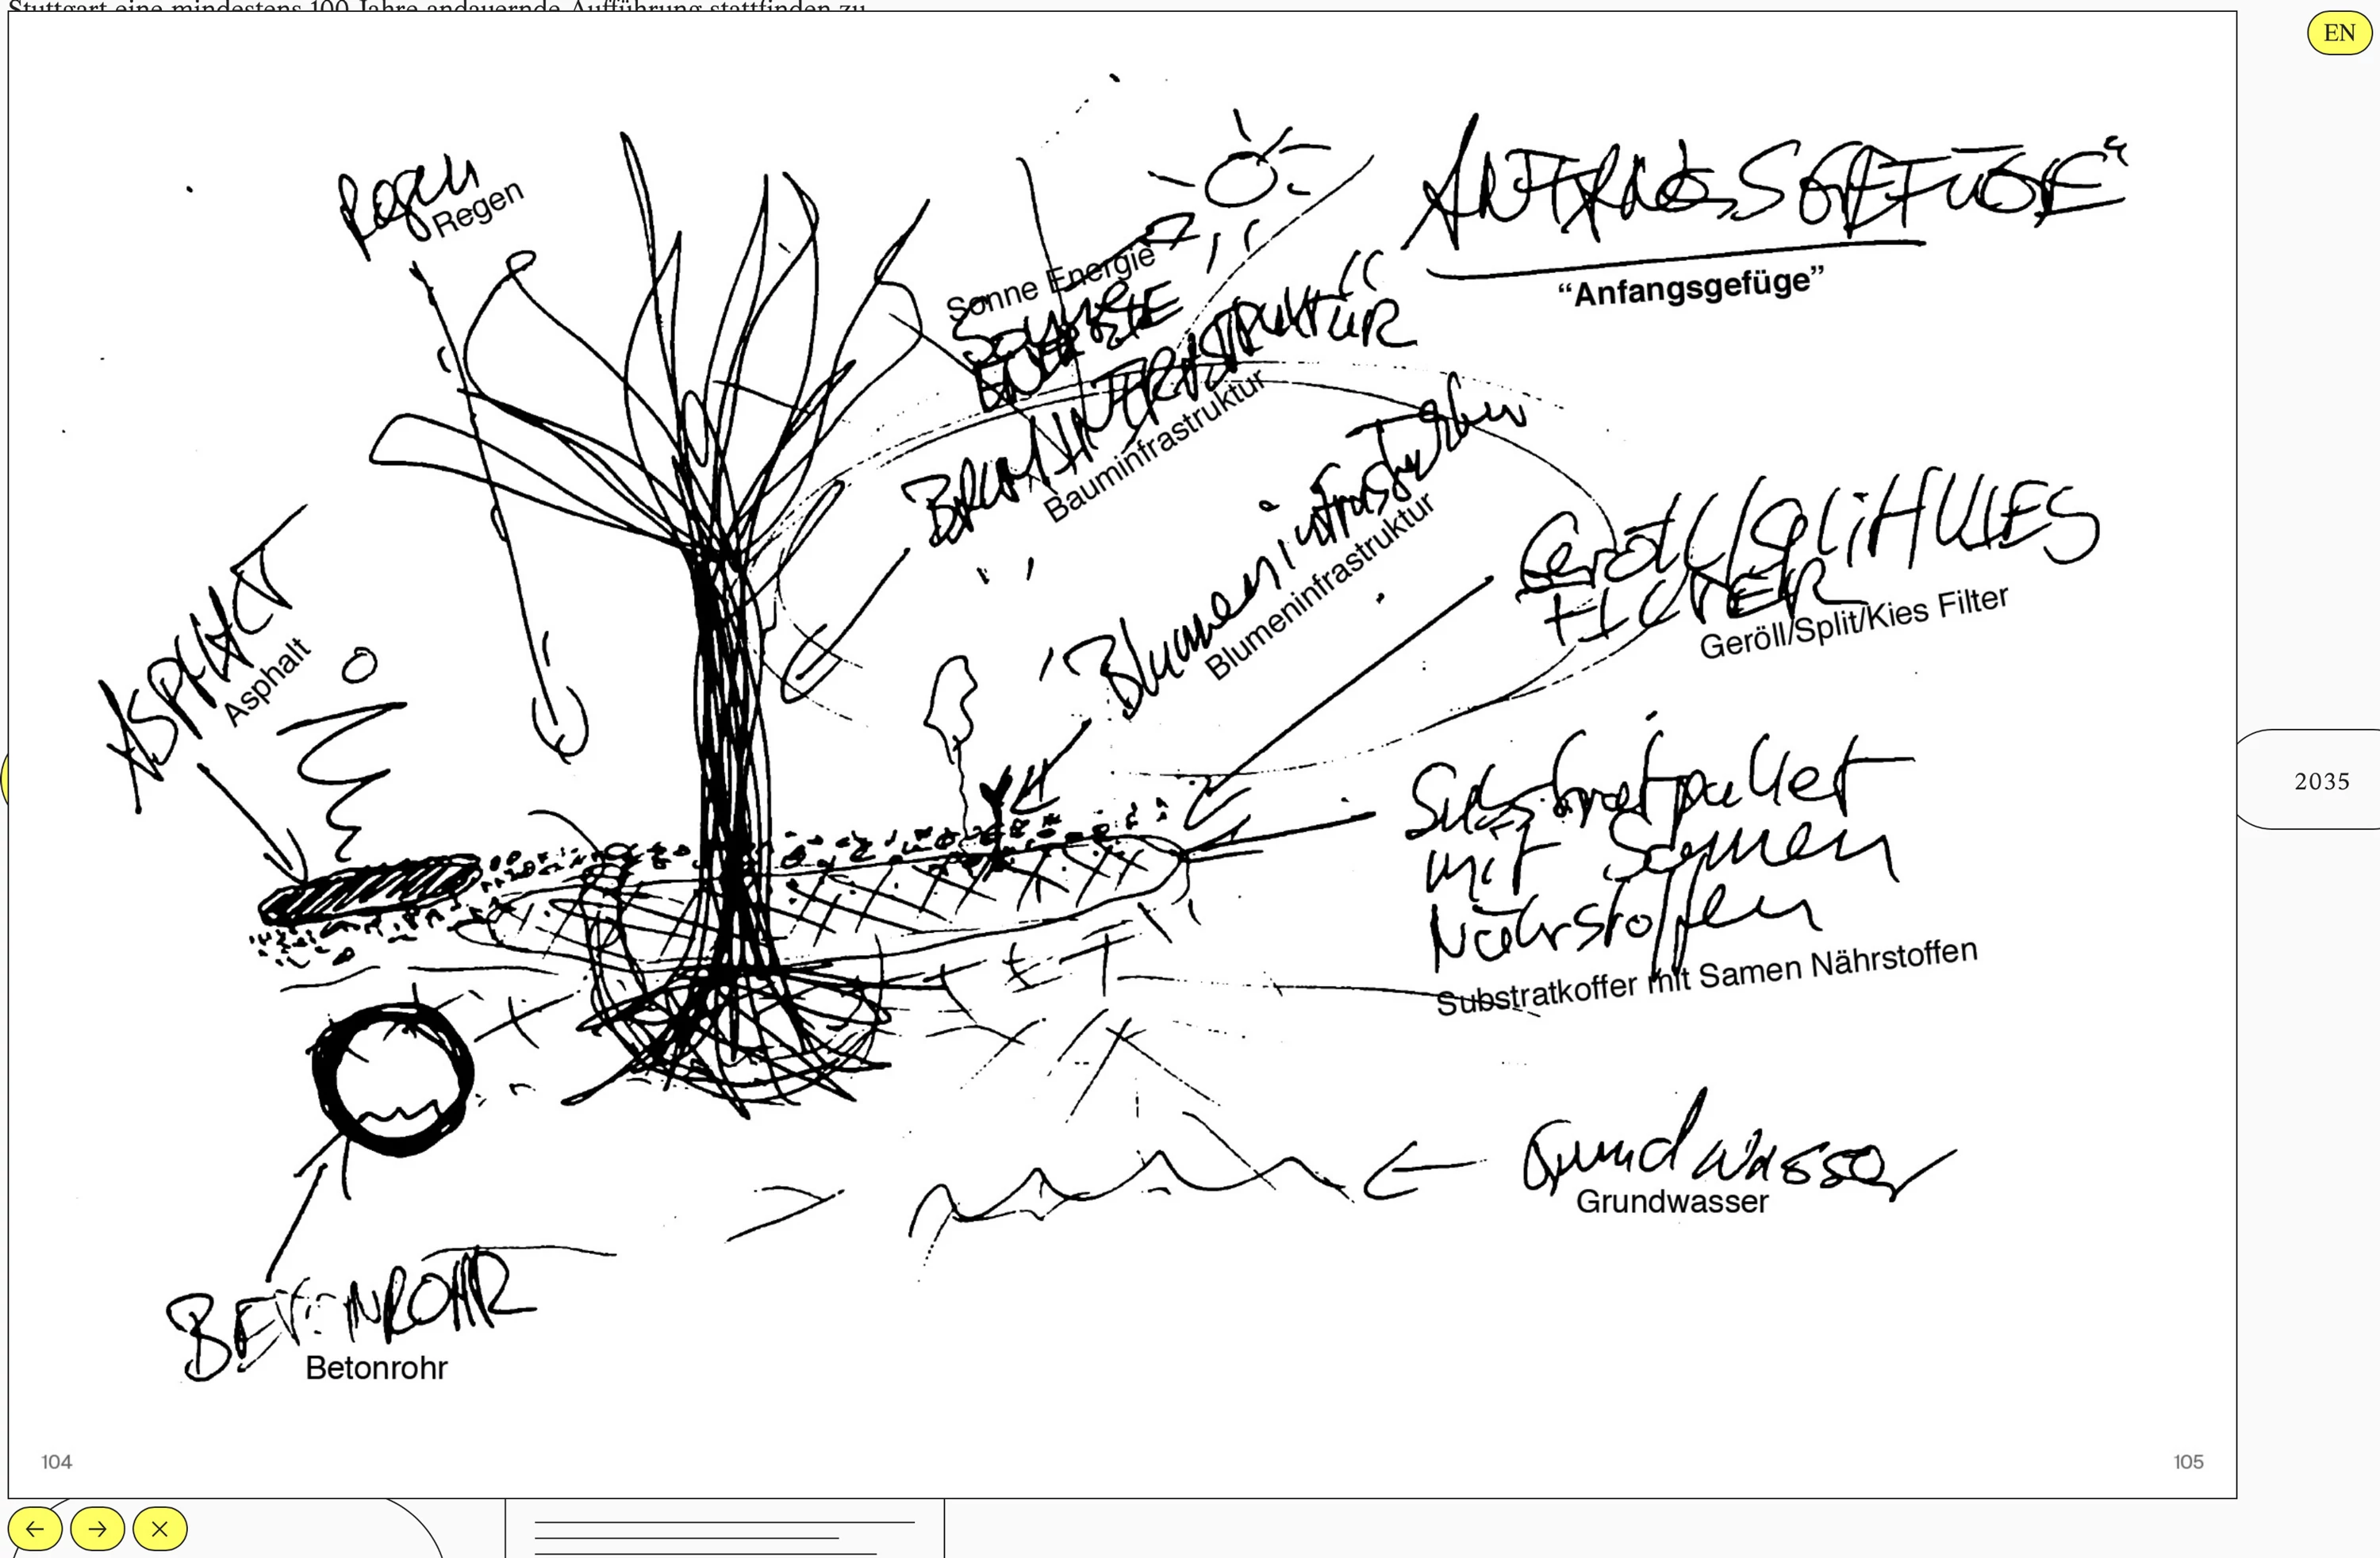 Stuttgart eine mindestens 100 Jahre andauernde Aufführung stattfinden zu
EN
Regen
Regen
ANFANGSGEFÜGE“
“Anfangsgefüge”
Sonne Energie
SONNE
BAUMINFRASTRUKTUR
Bauminfrastruktur
Blumeninfrastruktur
Blumeninfrastruktur
Geröll/Split/KIES
FILTER
Geröll/Split/Kies Filter
ASPHALT
Asphalt
2035
Substrat
mit Samen
Nährstoffen
Substratkoffer mit Samen Nährstoffen
Grundwasser
Grundwasser
BETONROHR
Betonrohr
104
105